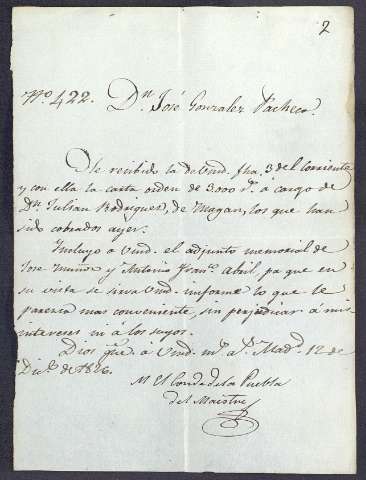 2
Nº 422. Dⁿ José Gonzalez Pacheco.
He recibido la de Vmd. fha. 3 del corriente
y con ella la carta orden de 3.000 rˢ. a cargo de
Dⁿ Julian Rodriguez, de Magan, los que han
sido cobrados ayer.
Incluyo a Vmd. el adjunto memorial de
Jose Muñoz y Antonio Franᶜᵒ. Abril, pa que en
su vista se sirva Vmd. informe lo que le
parezca mas conveniente, sin perjudicar á mis
intereses ni á los suyos.
Dios gᵘᵉ. á Vmd. mˢ. aˢ. Madᵈ. 12 de
Dicᵉ. de 1826.
El Conde de la Puebla
del Maestre